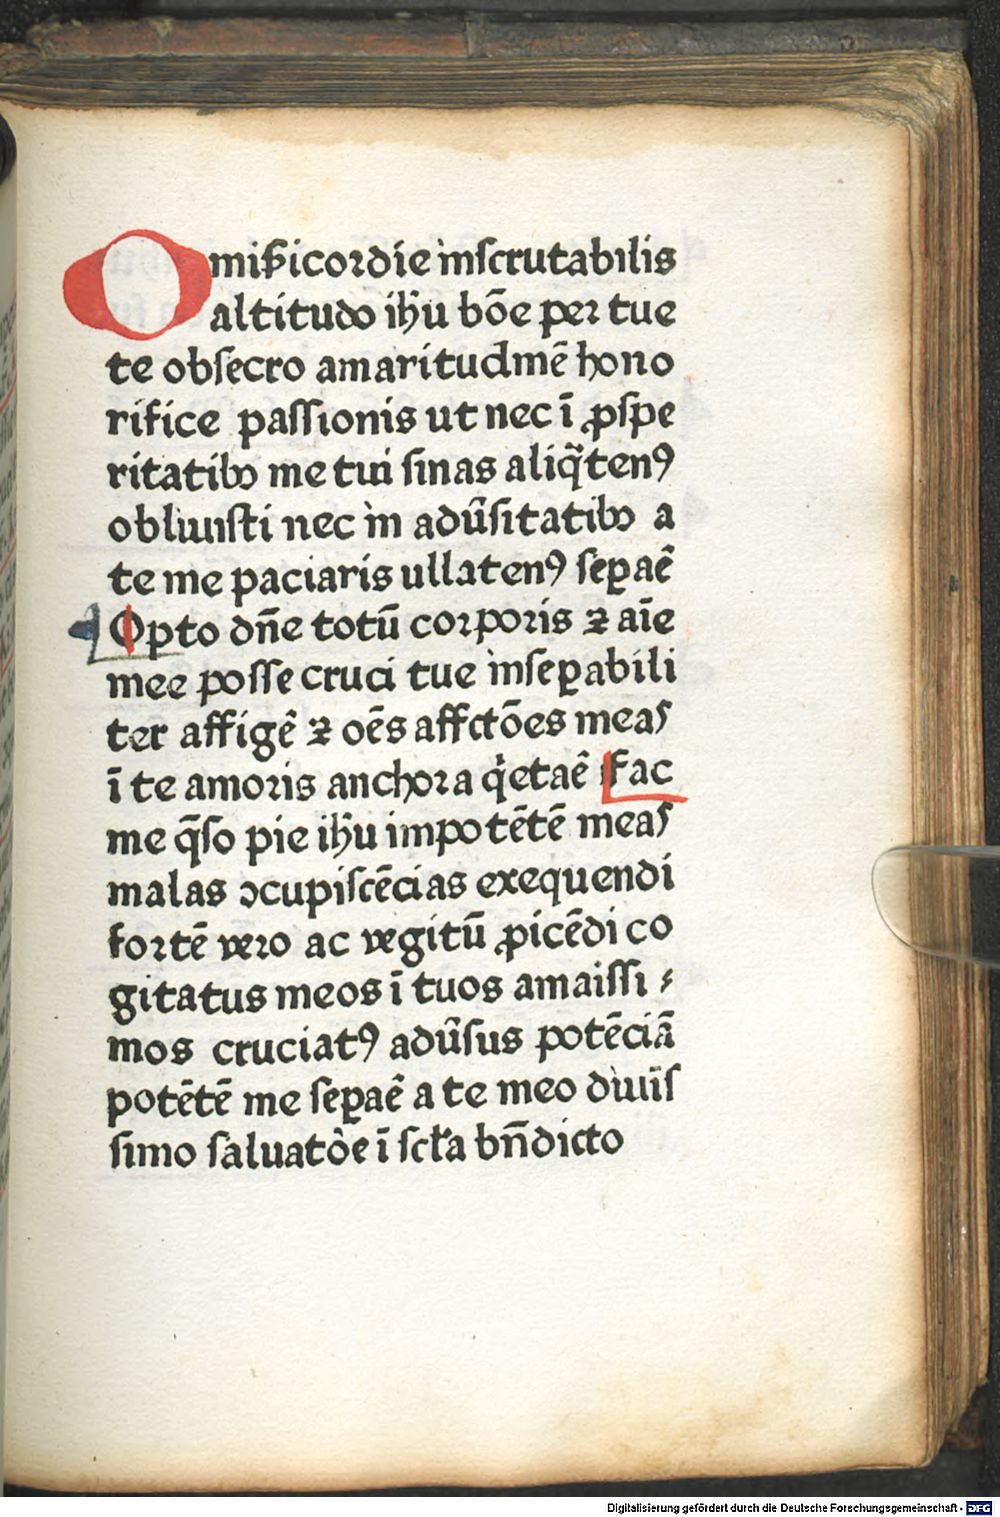 O miẜicordie inſcrutabilis
altitudo ih̄u bōe per tue
te obſecro amaritudinē hono
rifice paſſionis ut nec ī ꝓſpe
ritatibꝫ me tui ſinas aliq̄tenꝰ
obliuiſti nec in adūſitatibꝫ a
te me paciaris ullatenꝰ ſeꝑaē
Opto dn̄e totū corporis ⁊ aīe
mee poſſe cruci tue inſeꝑabili
ter affigē ⁊ oēs affctōes meas
ī te amoris anchora q̇etaē Fac
me q̄ſo pie ih̄u impotētē meas
malas ↄcupiſcēcias exequendi
fortē vero ac vegitū ꝓicēdi co
gitatus meos ī tuos amaiſſi⸗
mos cruciatꝰ adūſus potēciā
potētē me ſeꝑaē a te meo diuiſ
ſimo ſaluatōe ī ſcl̄a bn̄dicto
Digitalisierung gefördert durch die Deutsche Forschungsgemeinschaft - DFG